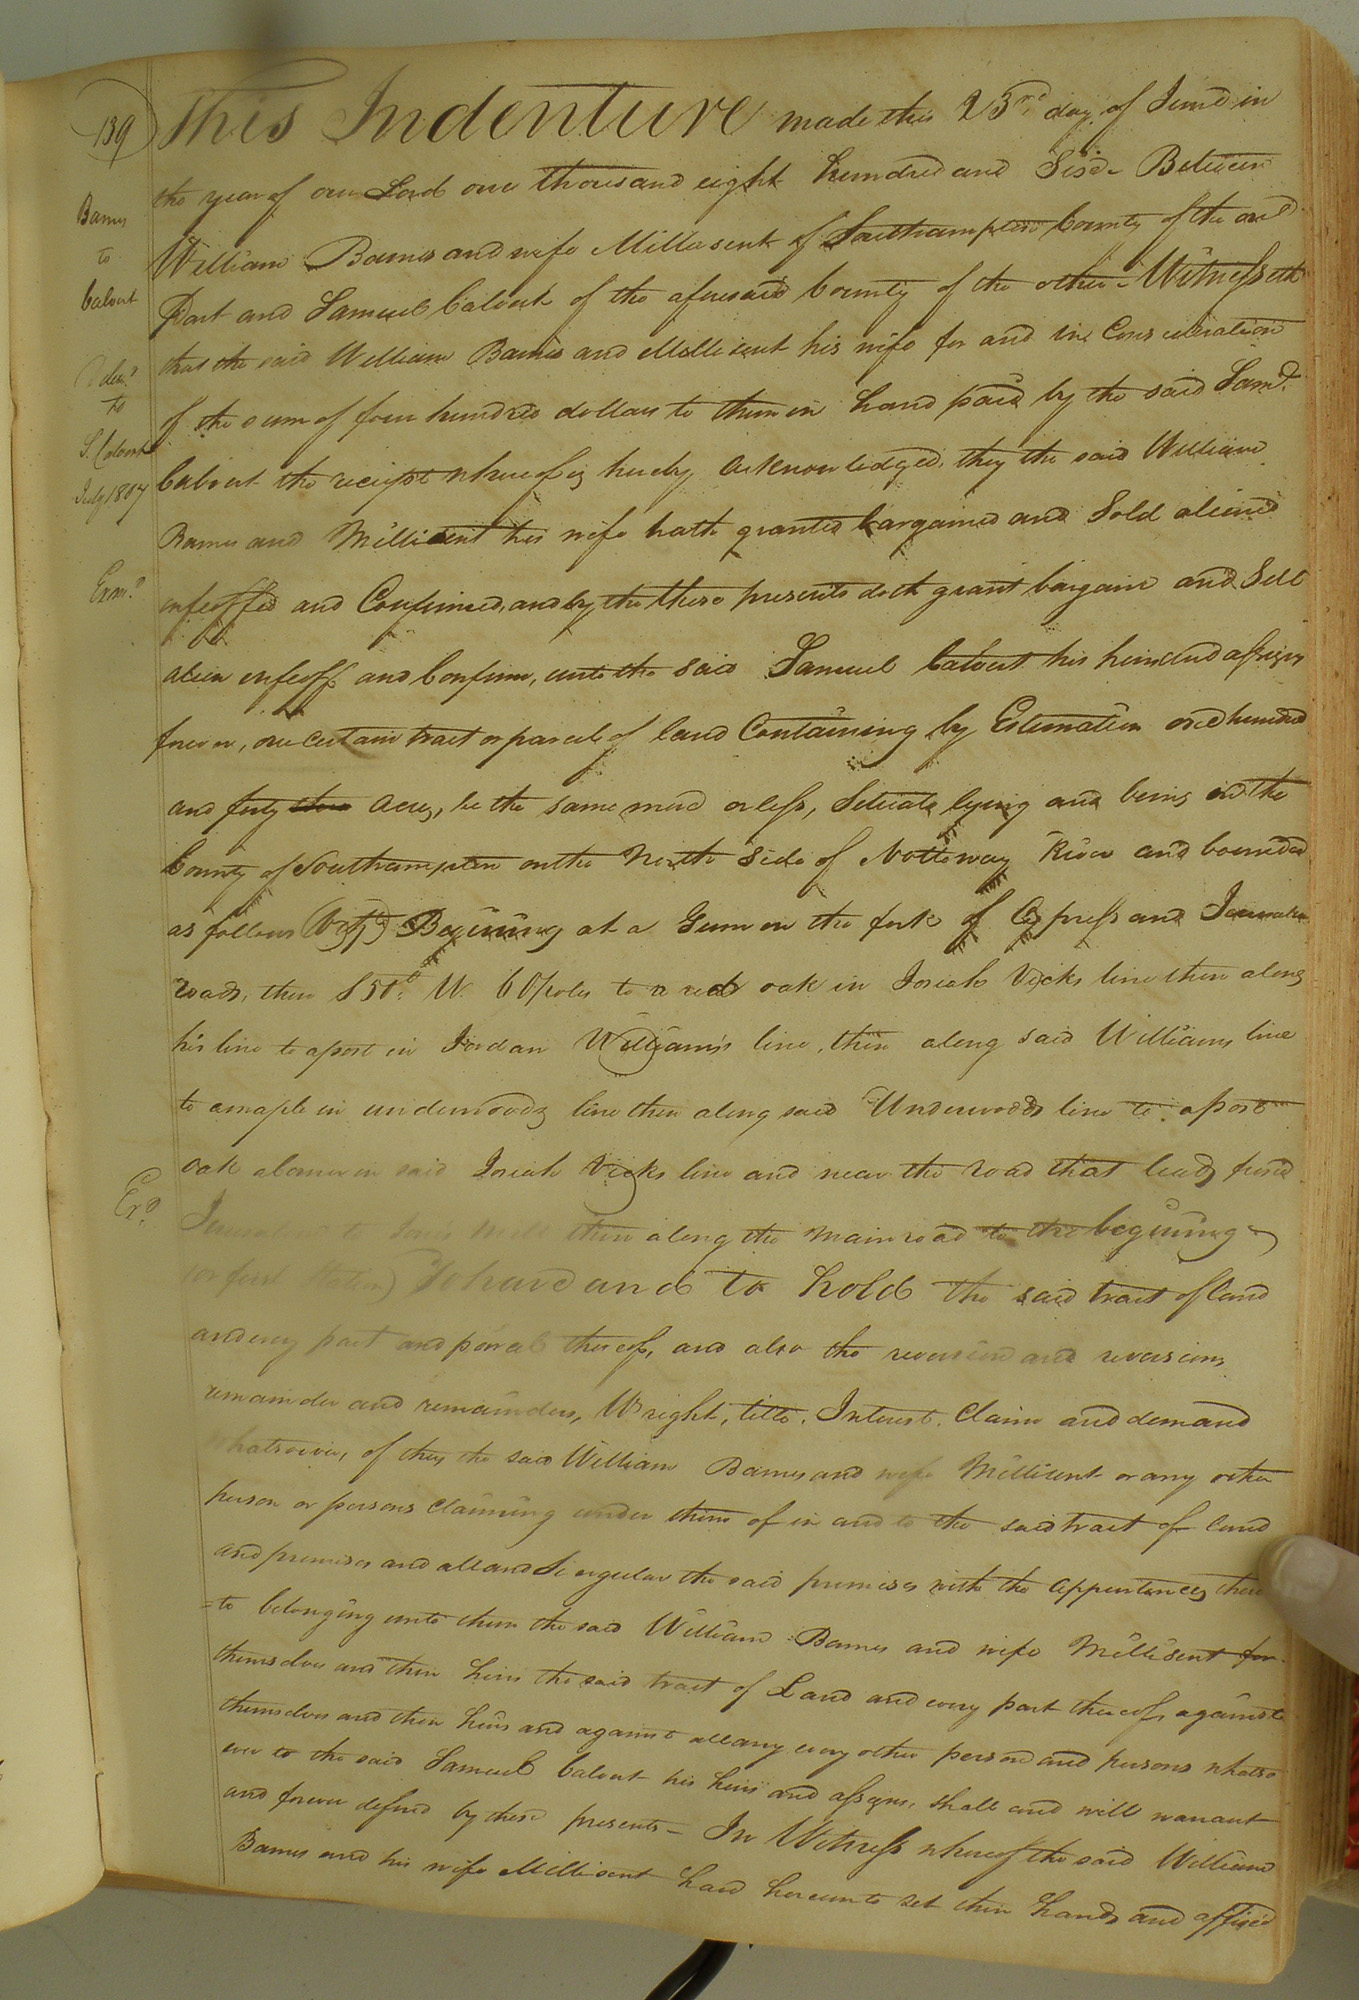 139
This Indenture made this 23rd day of June in
the year of our Lord one thousand eight hundred and Six Between
Barnes
William Barnes and wife Millesent of Southampton County of the one
to
Calvert
Part and Samuel Calvert of the aforesaid County of the other Witnesseth
that the said William Barnes and Millesent his wife for and in Consideration
Delv.d
to
of the sum of four hundred dollars to them in hand paid by the said Saml.
S. Calvert
Calvert the receipt whereof is hereby Acknowledged, they the said William
July 1807
Barnes and Millisent his wife hath granted bargained and Sold aliened
Exm.d
enfeoffed and Confirmed, and by the these presents doth grant bargain and Sell
alien enfeoff and Confirm, unto the said Samuel Calvert his heirs and assigns
forever, one certain tract or parcel of land Containing by Estimation one hundred
and forty acres, be the same more or less, Situate lying and being in the
County of Southampton on the North Side of Nottoway River and bounded
as follows (Viz) Begining at a Gum on the fork of Cypress and Jerusalem
roads, then S 50d. W. 60 poles to a red oak in Josiah Vicks line then along
his line to a post in Jordan Williams's line, then along said Williams line
to a maple in underwoods line then along said Underwoods line to a post
oak a corner in said Josiah Vicks line and near the road that leads from
Ex.d
Jerusalem to mill then along the main road to the begining
(or first Station) To have and to hold the said tract of land
and every part and parcel thereof, and also the reversion and reversions
remainder and remainders, Wright, title, Interest, Claim and demand
whatsoever, of they the said William Barnes and wife Millisent or any other
person or persons Claiming under them of in and to the said tract of land
and premises and all and Singular the said premises with the appurtences there
=to belonging unto them the said William Barnes and wife Millisent for
themselves and their heirs the said tract of Land and every part thereof, against
themselves and their heirs and against all any every other person and persons whatso
ever to the said Samuel Calvert his heirs and assigns, shall and will warrant
and forever defend by these presents – In Witness whereof the said William
Barnes and his wife Millisent have hereunto set their hands and affixed